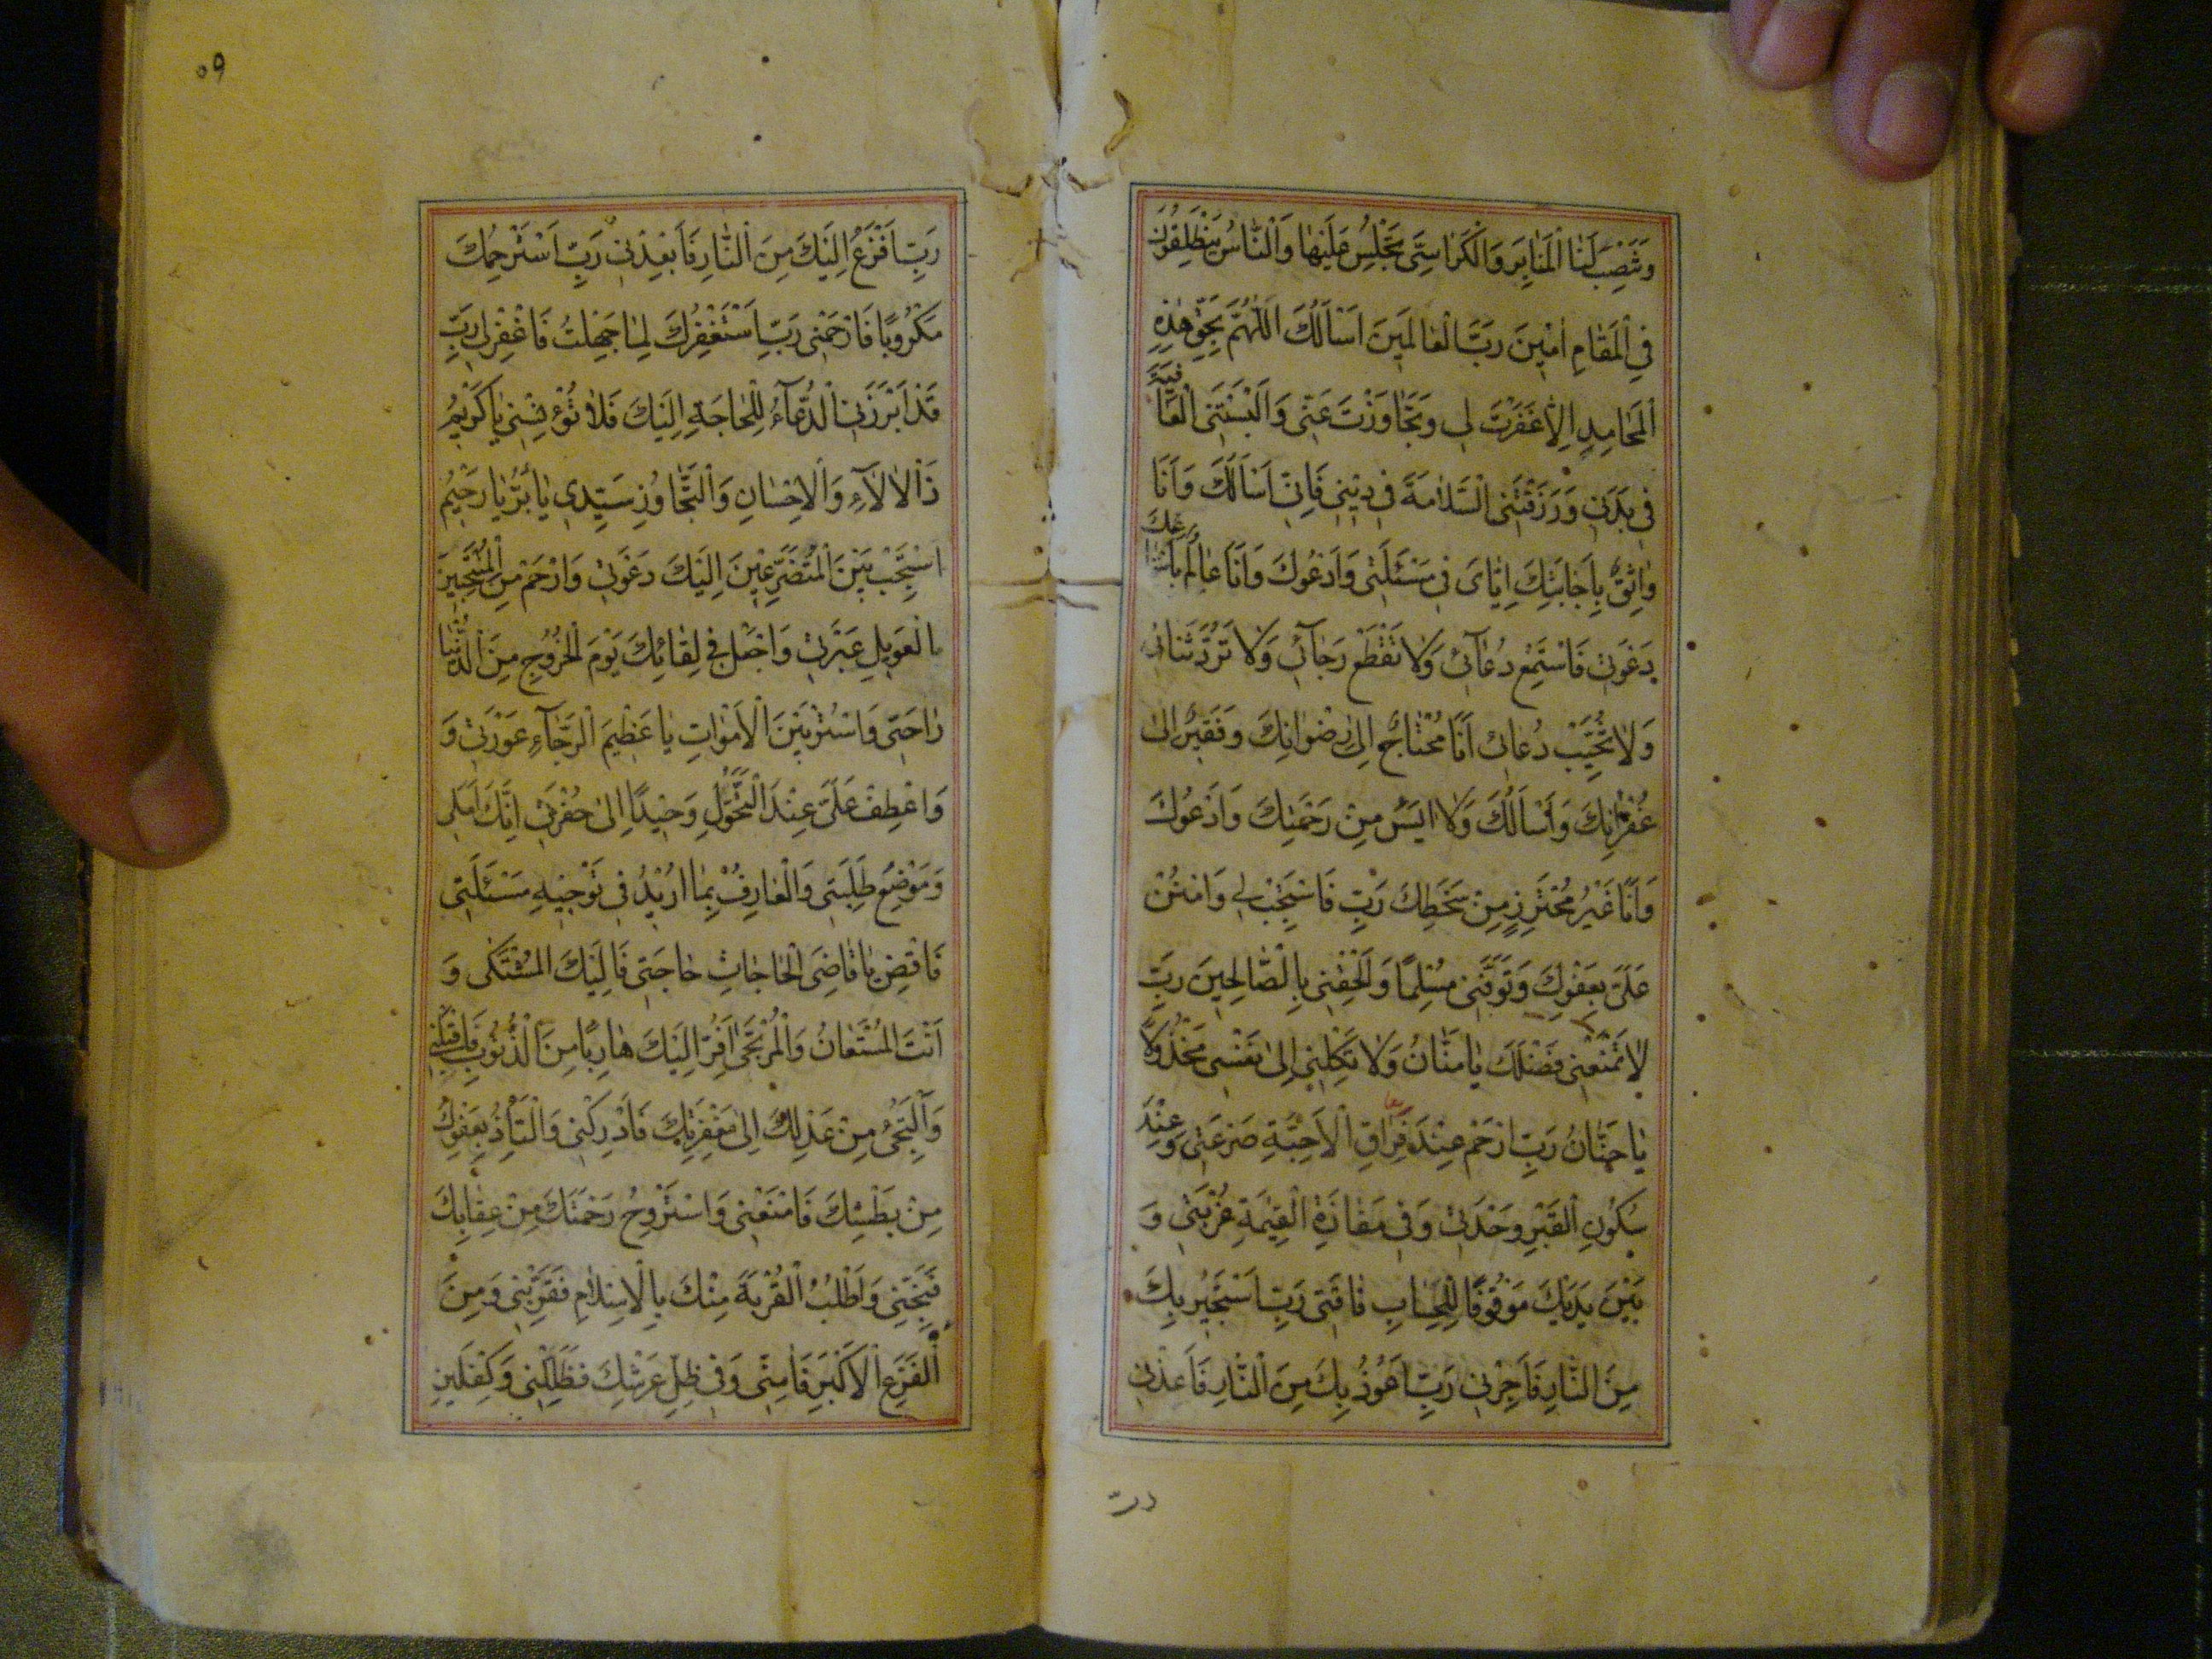 وَنَصِبَ لَنَا الْمَنَابِرَ وَالْكَرَاسِيَّ نَجْلِسُ عَلَيْهَا وَالنَّاسُ يَنْطَلِقُونَ
فِي الْمَقَامِ اٰمِينَ رَبَّ الْعَالَمِينَ اَسْاَلُكَ اللّٰهُمَّ بِحَقِّ هٰذِهِ
الْمَحَامِدِ اِلَّا غَفَرْتَ لِي وَتَجَاوَزْتَ عَنِّي وَاَلْبَسْتَنِي الْعَافِيَةَ
فِي بَدَنِي وَرَزَقْتَنِي السَّلَامَةَ فِي دِينِي فَاِنِّي اَسْاَلُكَ وَاَنَا
وَاثِقٌ بِاِجَابَتِكَ اِيَّايَ فِي مَسْئَلَتِي وَاَدْعُوكَ وَاَنَا عَالِمٌ بِاسْتِمَاعِكَ
دَعْوَتِي فَاسْتَمِعْ دُعَآئِي وَلَا تَقْطَعْ رَجَآئِي وَلَا تَرُدَّ ثَنَائِي
وَلَا تُخَيِّبْ دُعَائِي اَنَا مُحْتَاجٌ اِلَى رِضْوَانِكَ وَفَقِيرٌ اِلَى
غُفْرَانِكَ وَاَسْاَلُكَ وَلَا اٰيَسُ مِنْ رَحْمَتِكَ وَاَدْعُوكَ
وَاَنَا غَيْرُ مُحْتَرِزٍ مِنْ سَخَطِكَ رَبِّ فَاسْتَجِبْ لِي وَامْنُنْ
عَلَيَّ بِعَفْوِكَ وَتَوَفَّنِي مُسْلِمًا وَاَلْحِقْنِي بِالصَّالِحِينَ رَبِّ
لَا تَمْنَعْنِي فَضْلَكَ يَا مَنَّانُ وَلَا تَكِلْنِي اِلَى نَفْسِي مَخْذُولًا
يَا حَنَّانُ رَبِّ ارْحَمْ عِنْدَ فِرَاقِ الْاَحِبَّةِ صَرْعَتِي وَعِنْدَ
سُكُونِ الْقَبْرِ وَحْدَتِي وَفِي مَفَازَةِ الْقِيٰمَةِ غُرْبَتِي وَ
بَيْنَ يَدَيْكَ مَوْقُوفًا لِلْحِسَابِ فَاقَتِي رَبِّ اَسْتَجِيرُ بِكَ
مِنَ النَّارِ فَاَجِرْنِي رَبِّ اَعُوذُ بِكَ مِنَ النَّارِ فَاَعِذْنِي
رب
٥٩
رَبِّ اَفْزَعُ اِلَيْكَ مِنَ النَّارِ فَاَبْعِدْنِي رَبِّ اَسْتَرْحِمُكَ
مَكْرُوبًا فَارْحَمْنِي رَبِّ اَسْتَغْفِرُكَ لِمَا جَهِلْتُ فَاغْفِرْ لِي رَبِّ
قَدْ اَبْرَزَنِي الدُّعَآءُ لِلْحَاجَةِ اِلَيْكَ فَلَا تُؤْيِسْنِي يَا كَرِيمُ
ذَا الْاٰلَآءِ وَالْاِحْسَانِ وَالتَّجَاوُزِ سَيِّدِي يَا بَرُّ يَا رَحِيمُ
اسْتَجِبْ بَيْنَ الْمُتَضَرِّعِينَ اِلَيْكَ دَعْوَتِي وَارْحَمْ مِنَ الْمُنْتَحِبِينَ
بِالْعَوِيلِ عَبْرَتِي وَاجْعَلْ فِي لِقَائِكَ يَوْمَ الْخُرُوجِ مِنَ الدُّنْيَا
رَاحَتِي وَاسْتُرْ بَيْنَ الْاَمْوَاتِ يَا عَظِيمَ الرَّجَآءِ عَوْرَتِي وَ
وَاعْطِفْ عَلَيَّ عِنْدَ التَّحَوُّلِ وَحِيدًا اِلَى حُفْرَتِي اِنَّكَ اَمَلِي
وَمَوْضِعُ طَلِبَتِي وَالْعَارِفُ بِمَا اُرِيدُ فِي تَوْجِيهِ مَسْئَلَتِي
فَاقْضِ يَا قَاضِيَ الْحَاجَاتِ حَاجَتِي فَاِلَيْكَ الْمُشْتَكَى وَ
اَنْتَ الْمُسْتَعَانُ وَالْمُرْتَجَى اَفِرُّ اِلَيْكَ هَارِبًا مِنَ الذُّنُوبِ فَاقْبَلْنِي
وَاَلْتَجِئُ مِنْ عَدْلِكَ اِلَى مَغْفِرَتِكَ فَاَدْرِكْنِي وَاَلْتَاذُ بِعَفْوِكَ
مِنْ بَطْشِكَ فَامْنَعْنِي وَاَسْتَرْوِحُ رَحْمَتَكَ مِنْ عِقَابِكَ
فَنَجِّنِي وَاَطْلُبُ الْقُرْبَةَ مِنْكَ بِالْاِسْلَامِ فَقَرِّبْنِي وَمِنَ
الْفَزَعِ الْاَكْبَرِ فَاٰمِنِّي وَفِي ظِلِّ عَرْشِكَ فَظَلِّلْنِي وَكِفْلَيْنِ